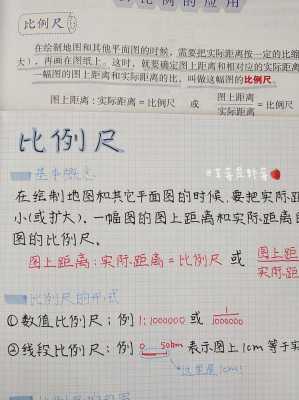 比例的应用
比例尺
在绘制地图和其他平面图的时候，需要把实际距离按一定的比缩
大），再画在图纸上。这时，就要确定图上距离和相对应的实际距离
一幅图的图上距离和实际距离的比，叫做这幅图的比例尺。
图上距离：实际距离＝比例尺 或 图上距离
实际距离 ＝比例尺
比例尺
基本概念
在绘制地图和其它平面图的时候，要把实际距
小(或扩大)，一幅图的图上距离和实际距离的
图的比例尺。
图上距离：实际距离＝比例尺 或 图上距
实际距
比例尺的形式
①数值比例尺：例 1:1000000 或 1/1000000
②线段比例尺：例 0 50km 表示图上1cm等于实
这里是1cm!